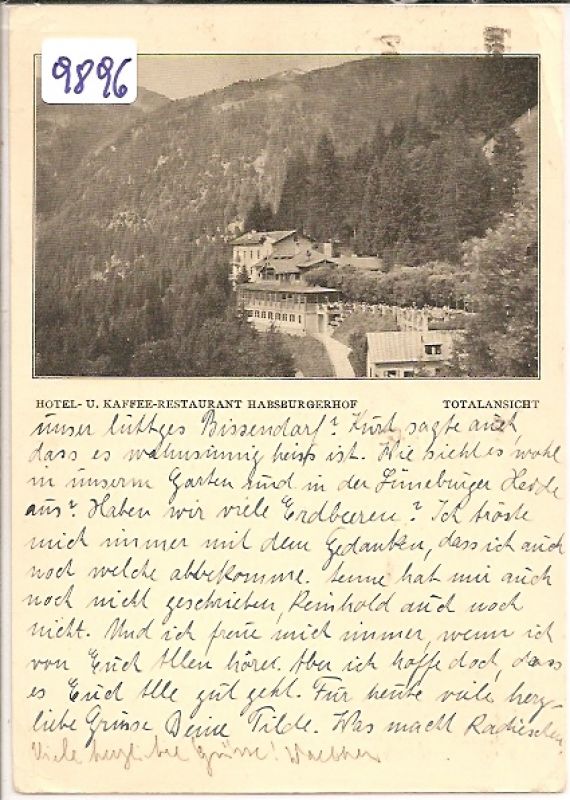 9896
HOTEL- U. KAFFEE-RESTAURANT HABSBURGERHOF TOTALANSICHT
unser lüttges Bissendorf? Kurt sagte auch,
dass es wahnsinnig heiss ist. Wie sieht es wohl
in unserm Garten und in der Lüneburger Heide
aus? Haben wir viele Erdbeeren? Ich tröste
mich immer mit dem Gedanken, dass ich auch
noch welche abbekomme. hat mir auch
noch nicht geschrieben, Reinhold auch noch
nicht. Und ich freue mich immer, wenn ich
von Euch Allen höre. Aber ich hoffe doch, dass
es Euch Alle gut geht. Für heute viele herz-
liebe Grüsse Deine Tilde. Was macht Radieschen
Viele herzliche Grüsse!